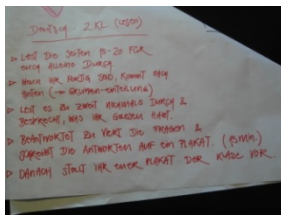 Deutsch 2KL (Lesen)
▷ Lest die Seiten 13-20 für
euch alleine durch.
▷ Wenn ihr fertig seid, kommt nach
hinten (→ Gruppen-einteilung)
▷ Lest es zu zweit nochmals durch &
besprecht, was ihr gelesen habt.
▷ Beantwortet zu viert die Fragen &
schreibt die Antworten auf ein Plakat. (15min.)
▷ Danach stellt ihr euer Plakat der Klasse vor.